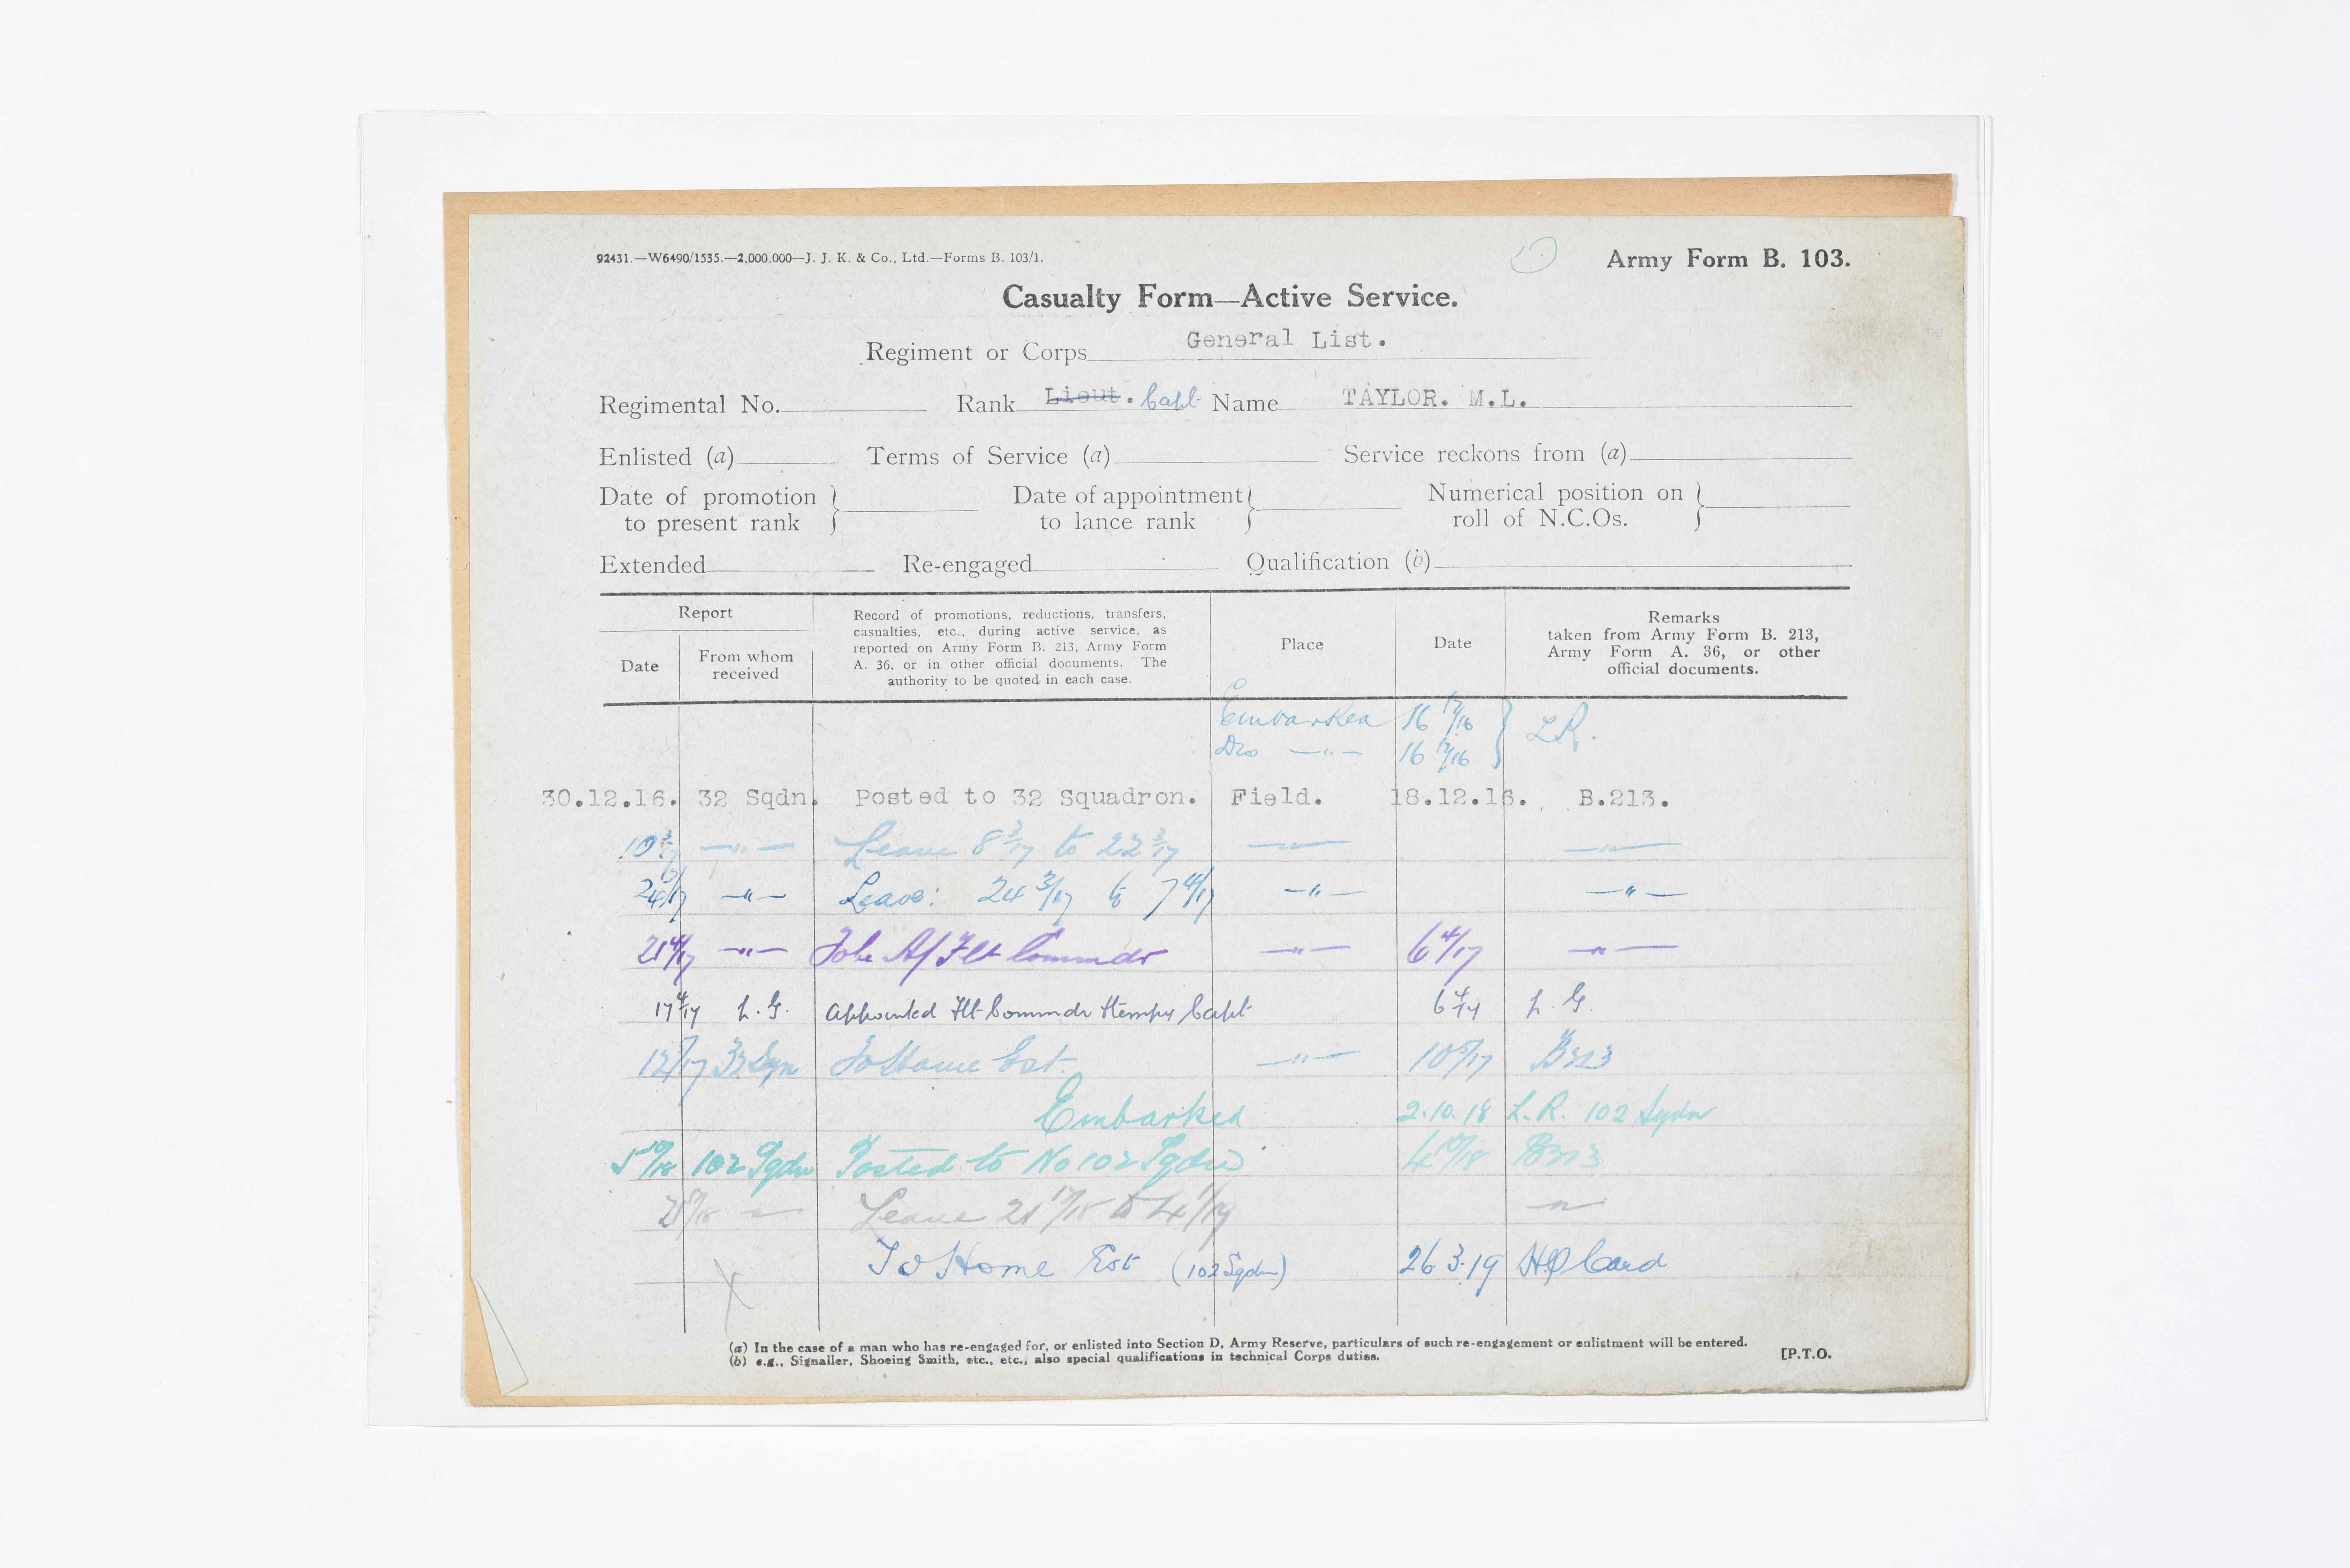 92431.—W6490/1535.—2,000,000—J. J. K. & Co., Ltd.—Forms B. 103/1.
Army Form B. 103.
Casualty Form—Active Service.
Regiment or Corps General List.
Regimental No. Rank Lieut. Capt Name TAYLOR. M.L.
Enlisted (a) Terms of Service (a) Service reckons from (a)
Date of promotion to present rank } Date of appointment to lance rank } Numerical position on roll of N.C.Os. }
Extended Re-engaged Qualification (b)
Report
Date
From whom received
Record of promotions, reductions, transfers,
casualties, etc., during active service, as
reported on Army Form B. 213, Army Form
A. 36, or in other official documents. The
authority to be quoted in each case.
Place
Date
Remarks
taken from Army Form B. 213,
Army Form A. 36, or other
official documents.
Embarked 16 12/16 } L.R.
Dis —"— 16 12/16
30.12.16. 32 Sqdn. Posted to 32 Squadron. Field. 18.12.16. B.213.
10 3/17 —"— Leave 8 3/17 to 22 3/17 —"— —"—
—"— Leave: 24 3/17 to 7 4/17 —"— —"—
21 4/17 —"— To be A/Flt Commdr —"— 6 4/17 —"—
17 4/17 L.G. Appointed Flt Commdr & tempy Capt 6 4/17 L.G.
32 Sqn To Home Est. —"— 10 5/17 B213
Embarked 2.10.18 L.R. 102 Sqdn
5 10/18 102 Sqdn Posted to No 102 Sqdn 4 10/18 B213
—"— Leave 21 12/18 to 4 1/19 —"—
To Home Est (102 Sqdn) 26.3.19 Card
(a) In the case of a man who has re-engaged for, or enlisted into Section D, Army Reserve, particulars of such re-engagement or enlistment will be entered.
(b) e.g., Signaller, Shoeing Smith, etc., etc., also special qualifications in technical Corps duties.
[P.T.O.